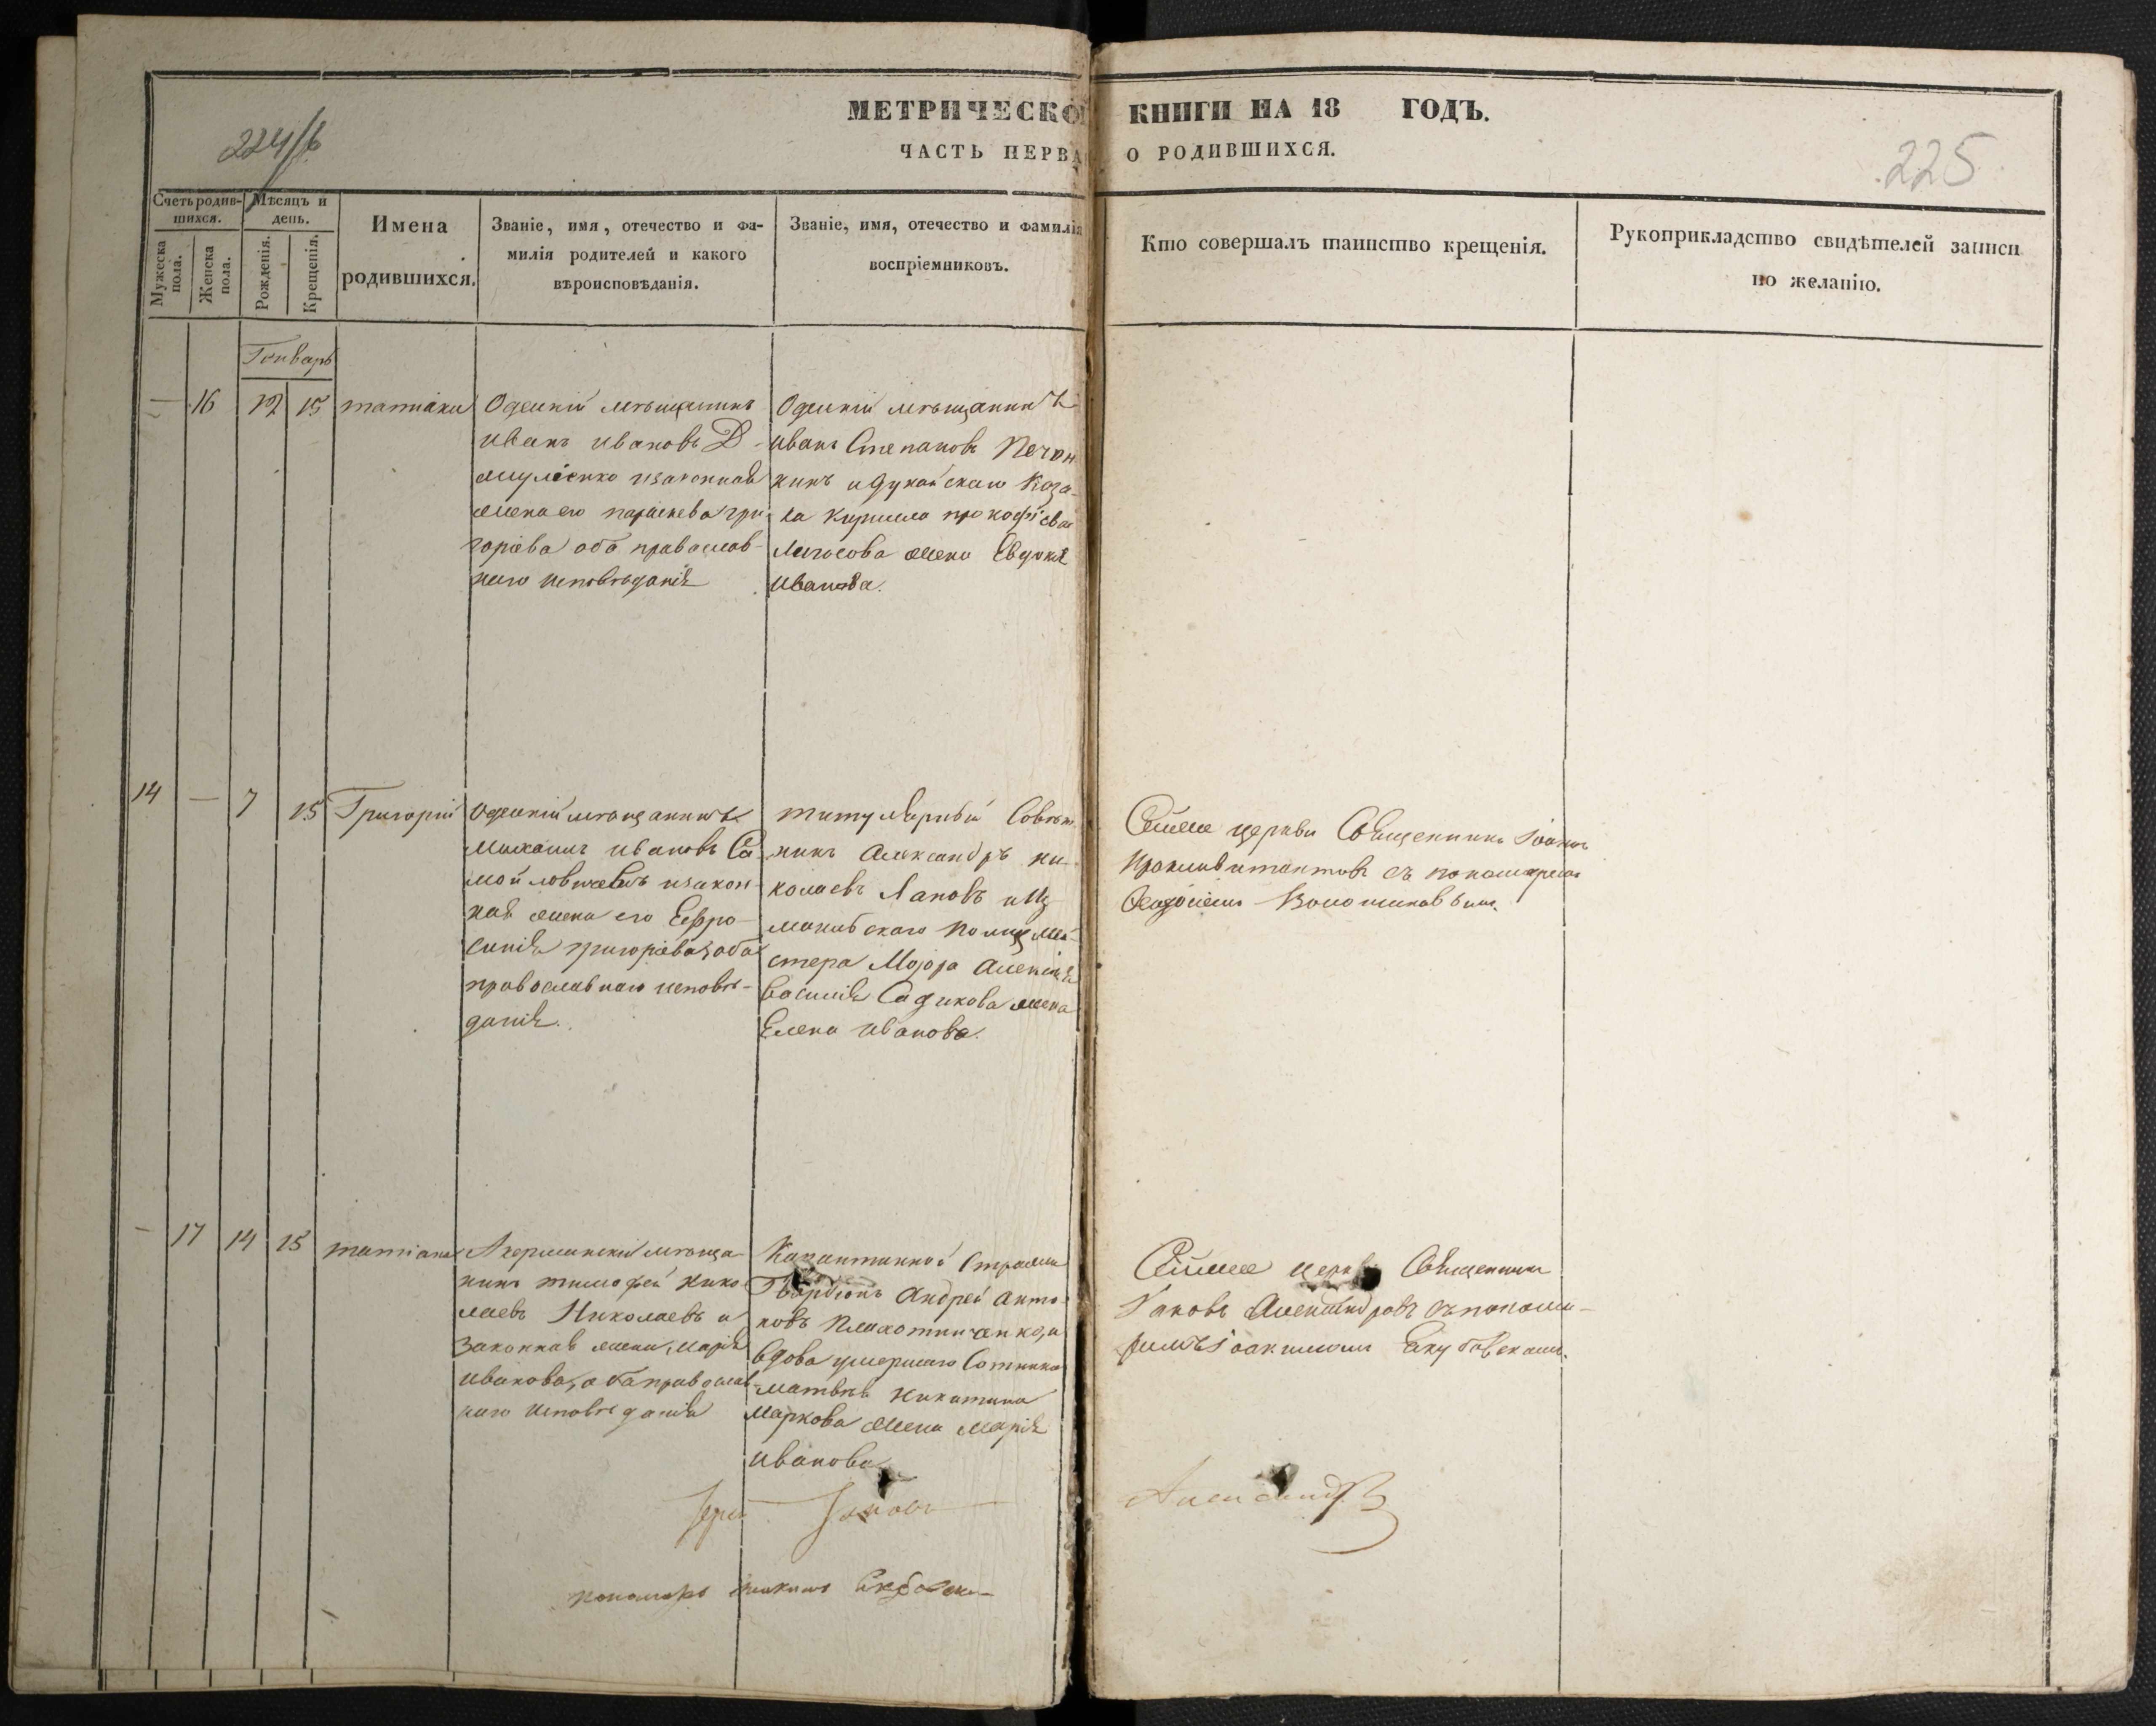 МЕТРИЧЕСКО КНИГИ НА 18 ГОДЪ.
ЧАСТЬ ПЕРВА О РОДИВШИХСЯ.
224/б
225
Счетъ родившихся.
Мѣсяцъ и день.
Мужеска пола.
Женска пола.
Рожденія.
Крещенія.
Имена
родившихся.
Званіе, имя, отечество и фа-
милія родителей и какого
вѣроисповѣданія.
Званіе, имя, отечество и фамилія
воспріемниковъ.
Кто совершалъ таинство крещенія.
Рукоприкладство свидѣтелей записи
по желанію.
Генварь
— 16 12 15
Одескій мѣщанинъ
иванъ ивановъ
изаконная
жена его параскева гри
горіева оба православ-
наго исповѣданія
Одескій мѣщанинъ
иванъ Степановъ
и дунайскаго Коза-
ка Кирилла прокофіева
жена Евдокія
иванова.
14 — 7 15 Григорій
Одескій мѣщанинъ
Михаилъ ивановъ Са
мойловичевъ изакон
ная жена его Евфро
синія григоріева, оба
православнаго исповѣ-
данія.
титулярный Совѣт
никъ Александръ ни
колаевъ Лановъ и Из
маильскаго Полицмей
стера Маіора Алексѣя
Василія Садикова жена
Елена иванова.
церкви Священникъ Іоаннъ
съ пономаремъ
— 17 14 15 татіана
Акерманскій мѣща
нинъ тимофей Нико
лаевъ Николаевъ и
законная жена, марія
иванова, оба православ
наго исповѣданія
Карантинной Стражи
Гвардіонъ Андрей анто
новъ Плахотниченко, и
вдова умершаго Сотника
матвѣя никитина
Маркова жена марія
иванова
церкви Священникъ
Іаковъ Александровъ съ понома-
ремъ іоакимомъ Якубовскимъ.
Іерей Іаковъ
Александр
пономарь іоакимъ